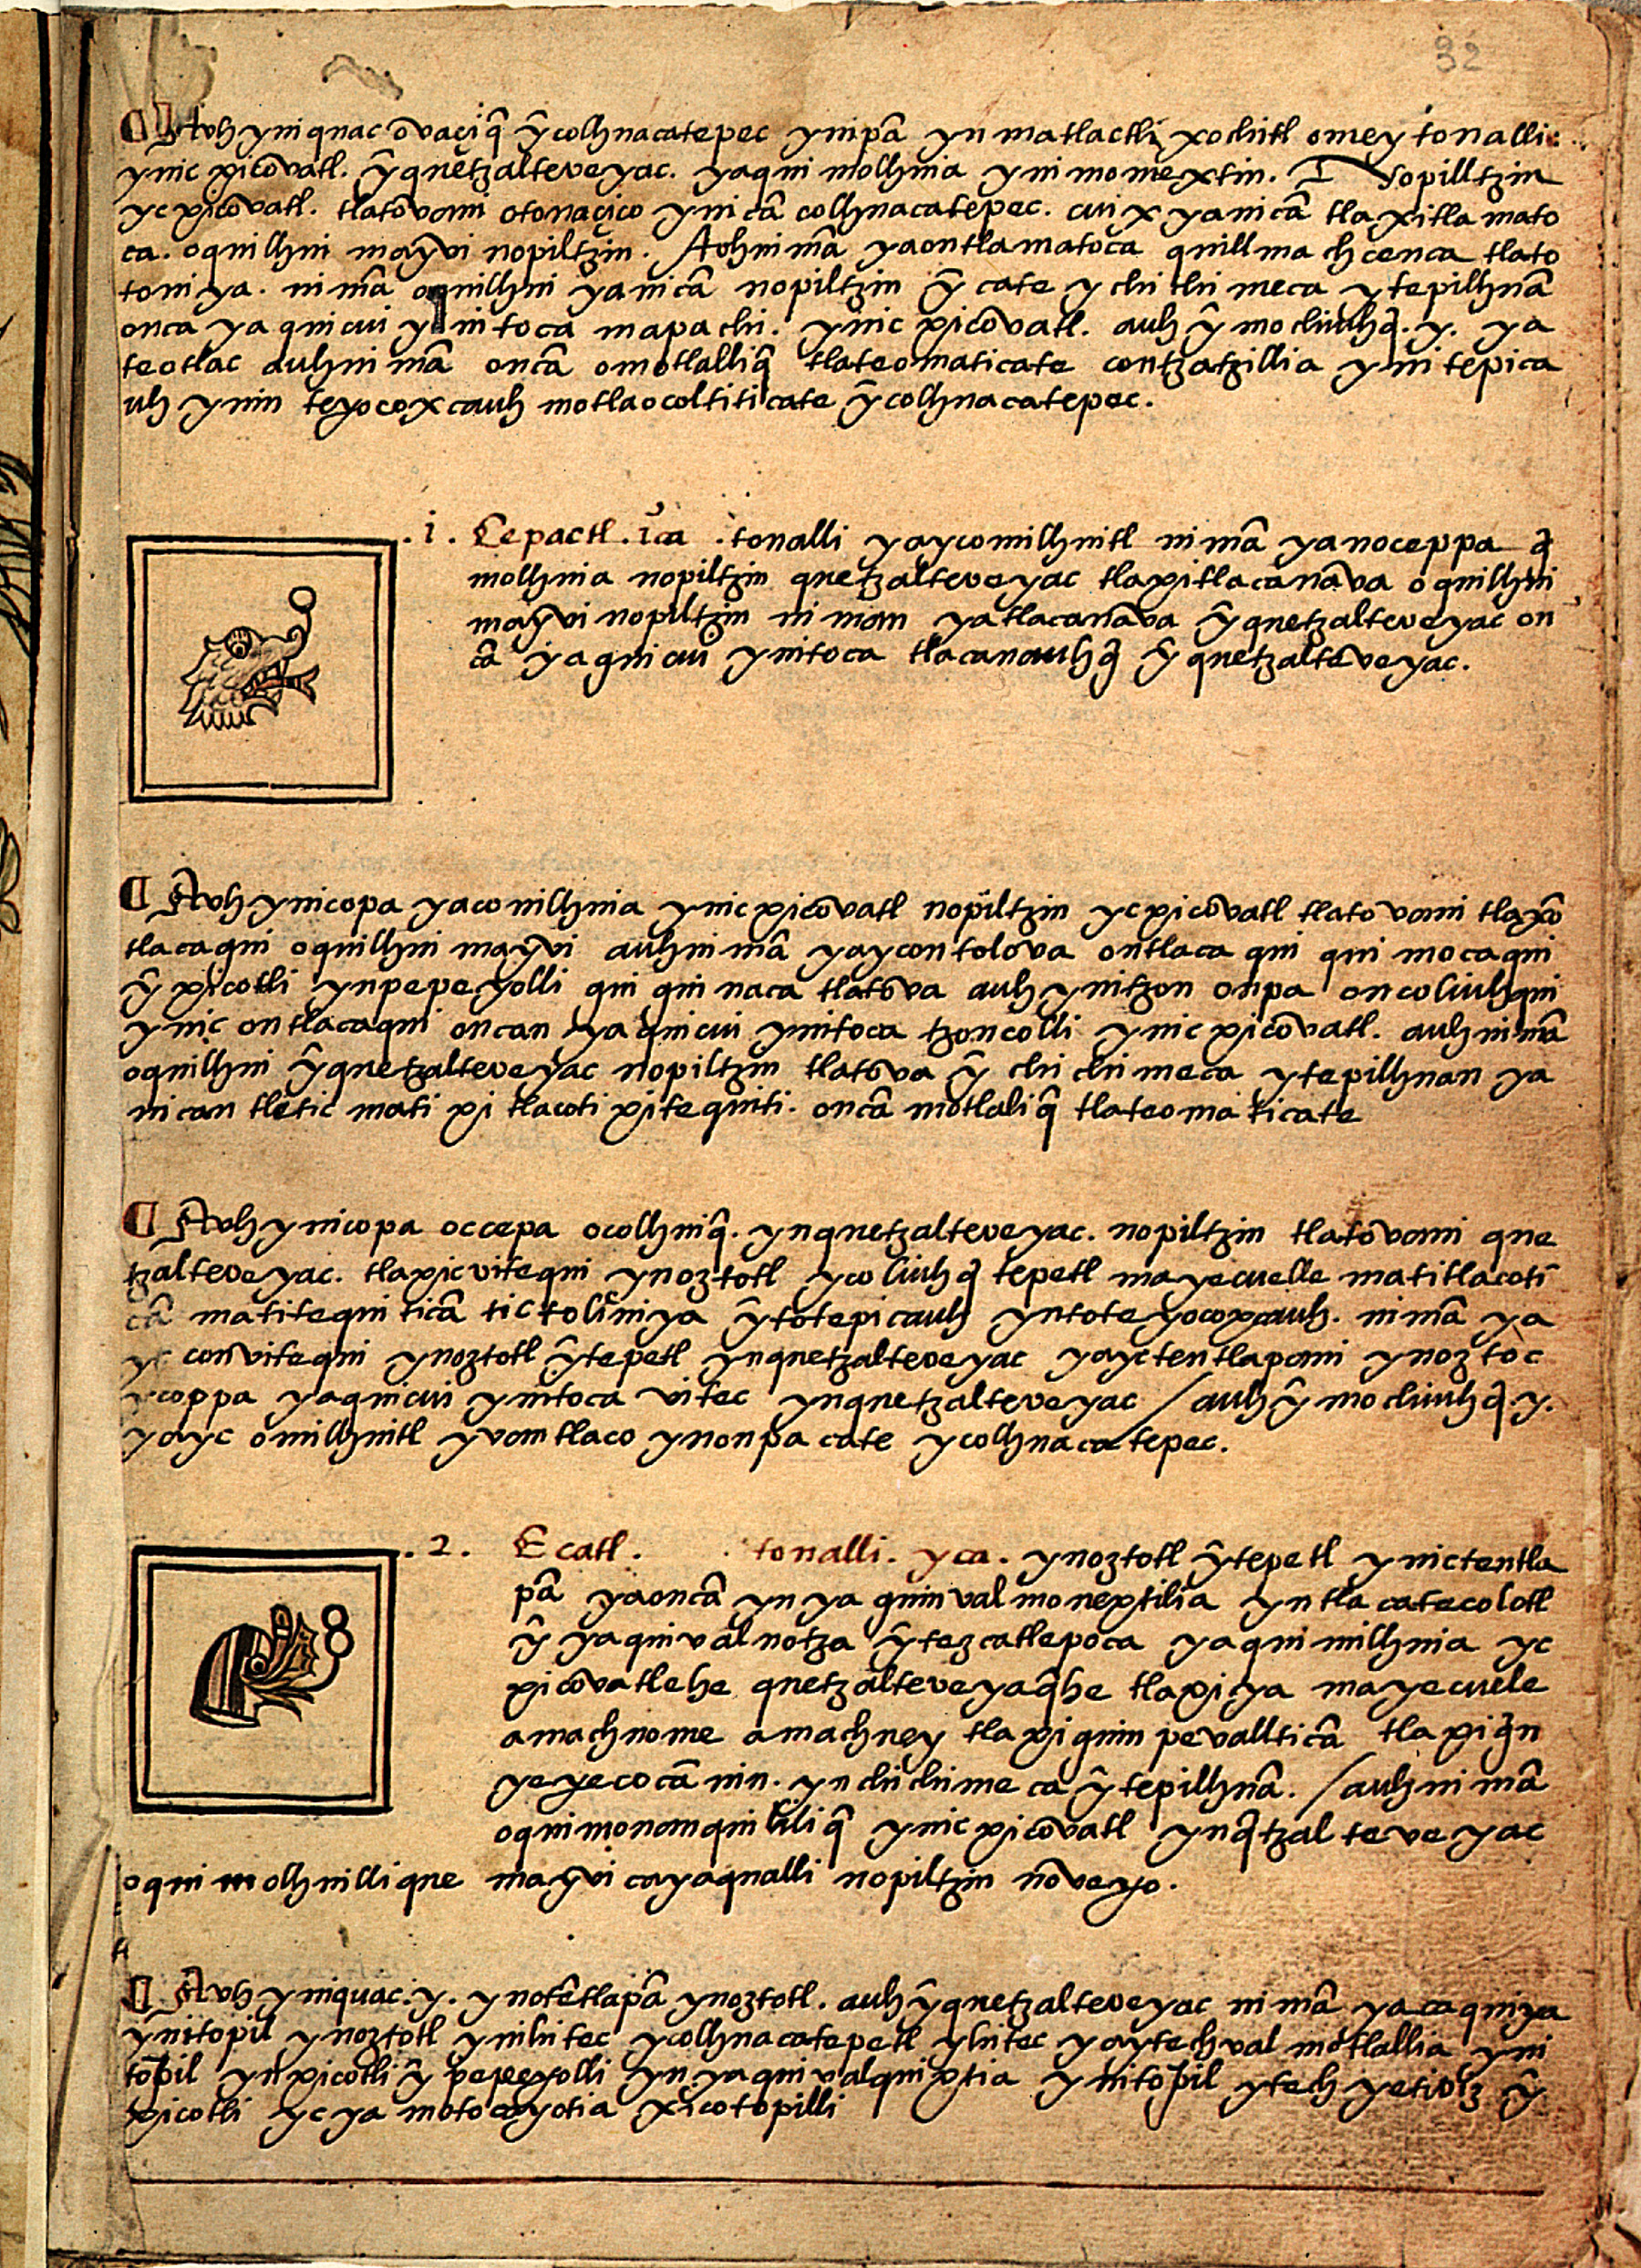 32
Auh yniquac ovaçiq̃ ỹcolhuacatepec ynipã yn matlactli xochitl omey tonalli
ynic xicovatl. ỹquetzalteveyac. yaqui molhuia ynimomextin. Nopilltzin
ycxicovatl. tlatōvani otonaçico ynicã colhuacatepec. cuix yanicã tlaxitlamato
ca. oquilhui mayvi nopiltzin. Auhnimã yaontlamatoca quillmachcenca tlato
toniya. nimã oquilhui yanicã nopiltzin ỹ cate ychichimeca ytepilhuã
onca yaquicui ynitoca mapachi. ynic xicōvatl. auh ỹ mochiuhq̃. y. ya
teotlac auhnimã oncã omotlalliq̃ tlateomaticate contzatzillia ynitepica
uh ynin teyocoxcauh motlaocoltiticate ỹcolhuacatepec.
.i. Cepactl. ica .tonalli yaycomilhuitl nimã yanoceppa q̃
molhuia nopiltzin quetzalteveyac tlaxitlacanāva oquilhui
mayvi nopiltzin niman yatlacanāva ỹquetzalteveyac on
cã yaquicui ynitoca tlacanauhq̃ ỹ quetzaltēveyac.
Auh ynicopa yaconilhuia ynicxicōvatl nopiltzin ycxicōvatl tlatovani tlaxō
tlacaqui oquilhui mayvi auhnimã yaycontolova ontlacaqui quimocaqui
ỹ xicotli ynpepeyolli quiquinaca tlatōva auh ynitzon onpa oncoliuhqui
ynic ontlacaqui oncan yaquicui ynitoca tzoncolli ynic xicōvatl. auhnimã
oquilhui ỹquetzalteveyac nopiltzin tlatōva ỹ chichimeca ytepilhuan ya
nican tletic mati xi tlacoti xitequiti. oncã motlaliq̃ tlateomaticate
Auh ynicopa occepa ocolhuiq̃. ynquetzalteveyac. nopiltzin tlatōvani que
tzalteveyac. tlaxicvitequi ynoztotl ycoliuhq̃ tepetl mayecuelle matitlacoti
cã matitequiticã tictoliniya ỹtotepicauh yntoteyocoxcauh. nimã ya
yc convitequi ynoztotl ỹtepetl ynquetzalteveyac yayctentlapani ynoztoc
ycoppa yaquicui ynitoca vitec ynquetzalteveyac / auh ỹ mochiuhq̃. y.
yayc omilhuitl yvantlaco ynonpa cate ycolhuacatepec.
.2. Ecatl. tonalli. yca. ynoztotl ỹtepetl ynictentla
pã yaoncã yn ya quinvalmonextilia yntlacatecolotl
ỹ yaquivalnotza ỹtezcatlepoca yaquimilhuia yc
xicōvatlehe quetzalteveyaq̃he tlaxiya mayecuele
amachnome amachney tlaxiquin pevallticã tlaxiq̃n
yeyecocã nin. ynchichimeca ỹtepilhuã. / auhnimã
oquimonanquililiq̃ ynicxicōvatl ynq̃tzalteveyac
oquimolhuillique mayvi cayaqualli nopiltzin nōveyo.
Auh yniquac. y. ynotētlapã ynoztotl. auhỹquetzalteveyac nimã yacaquiya
ynitopil ynoztotl ynihitec ycolhuacatepetl yhitec yaytechvalmotlallia yni
topil ynxicotli ỹ pepeyolli yn yaquivalquixtia ynitopil ytech yetivitz ỹ
xicotli yc ya motocayotia xicotopilli